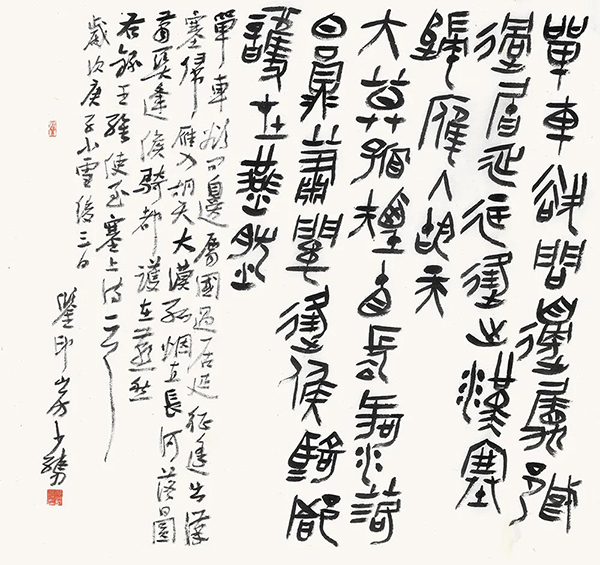 單車欲問邊屬國
過居延征蓬出漢塞
歸雁入胡天
大漠孤煙直長河落
日圓蕭關逢候騎都
護在燕然
單車欲問邊屬國過居延征蓬出漢
塞歸雁入胡天大漠孤烟直長河落日圓
蕭關逢候騎都護在燕然
右錄王維使至塞上詩一首
歲次庚子小雪後三日
鑒印山房少孺